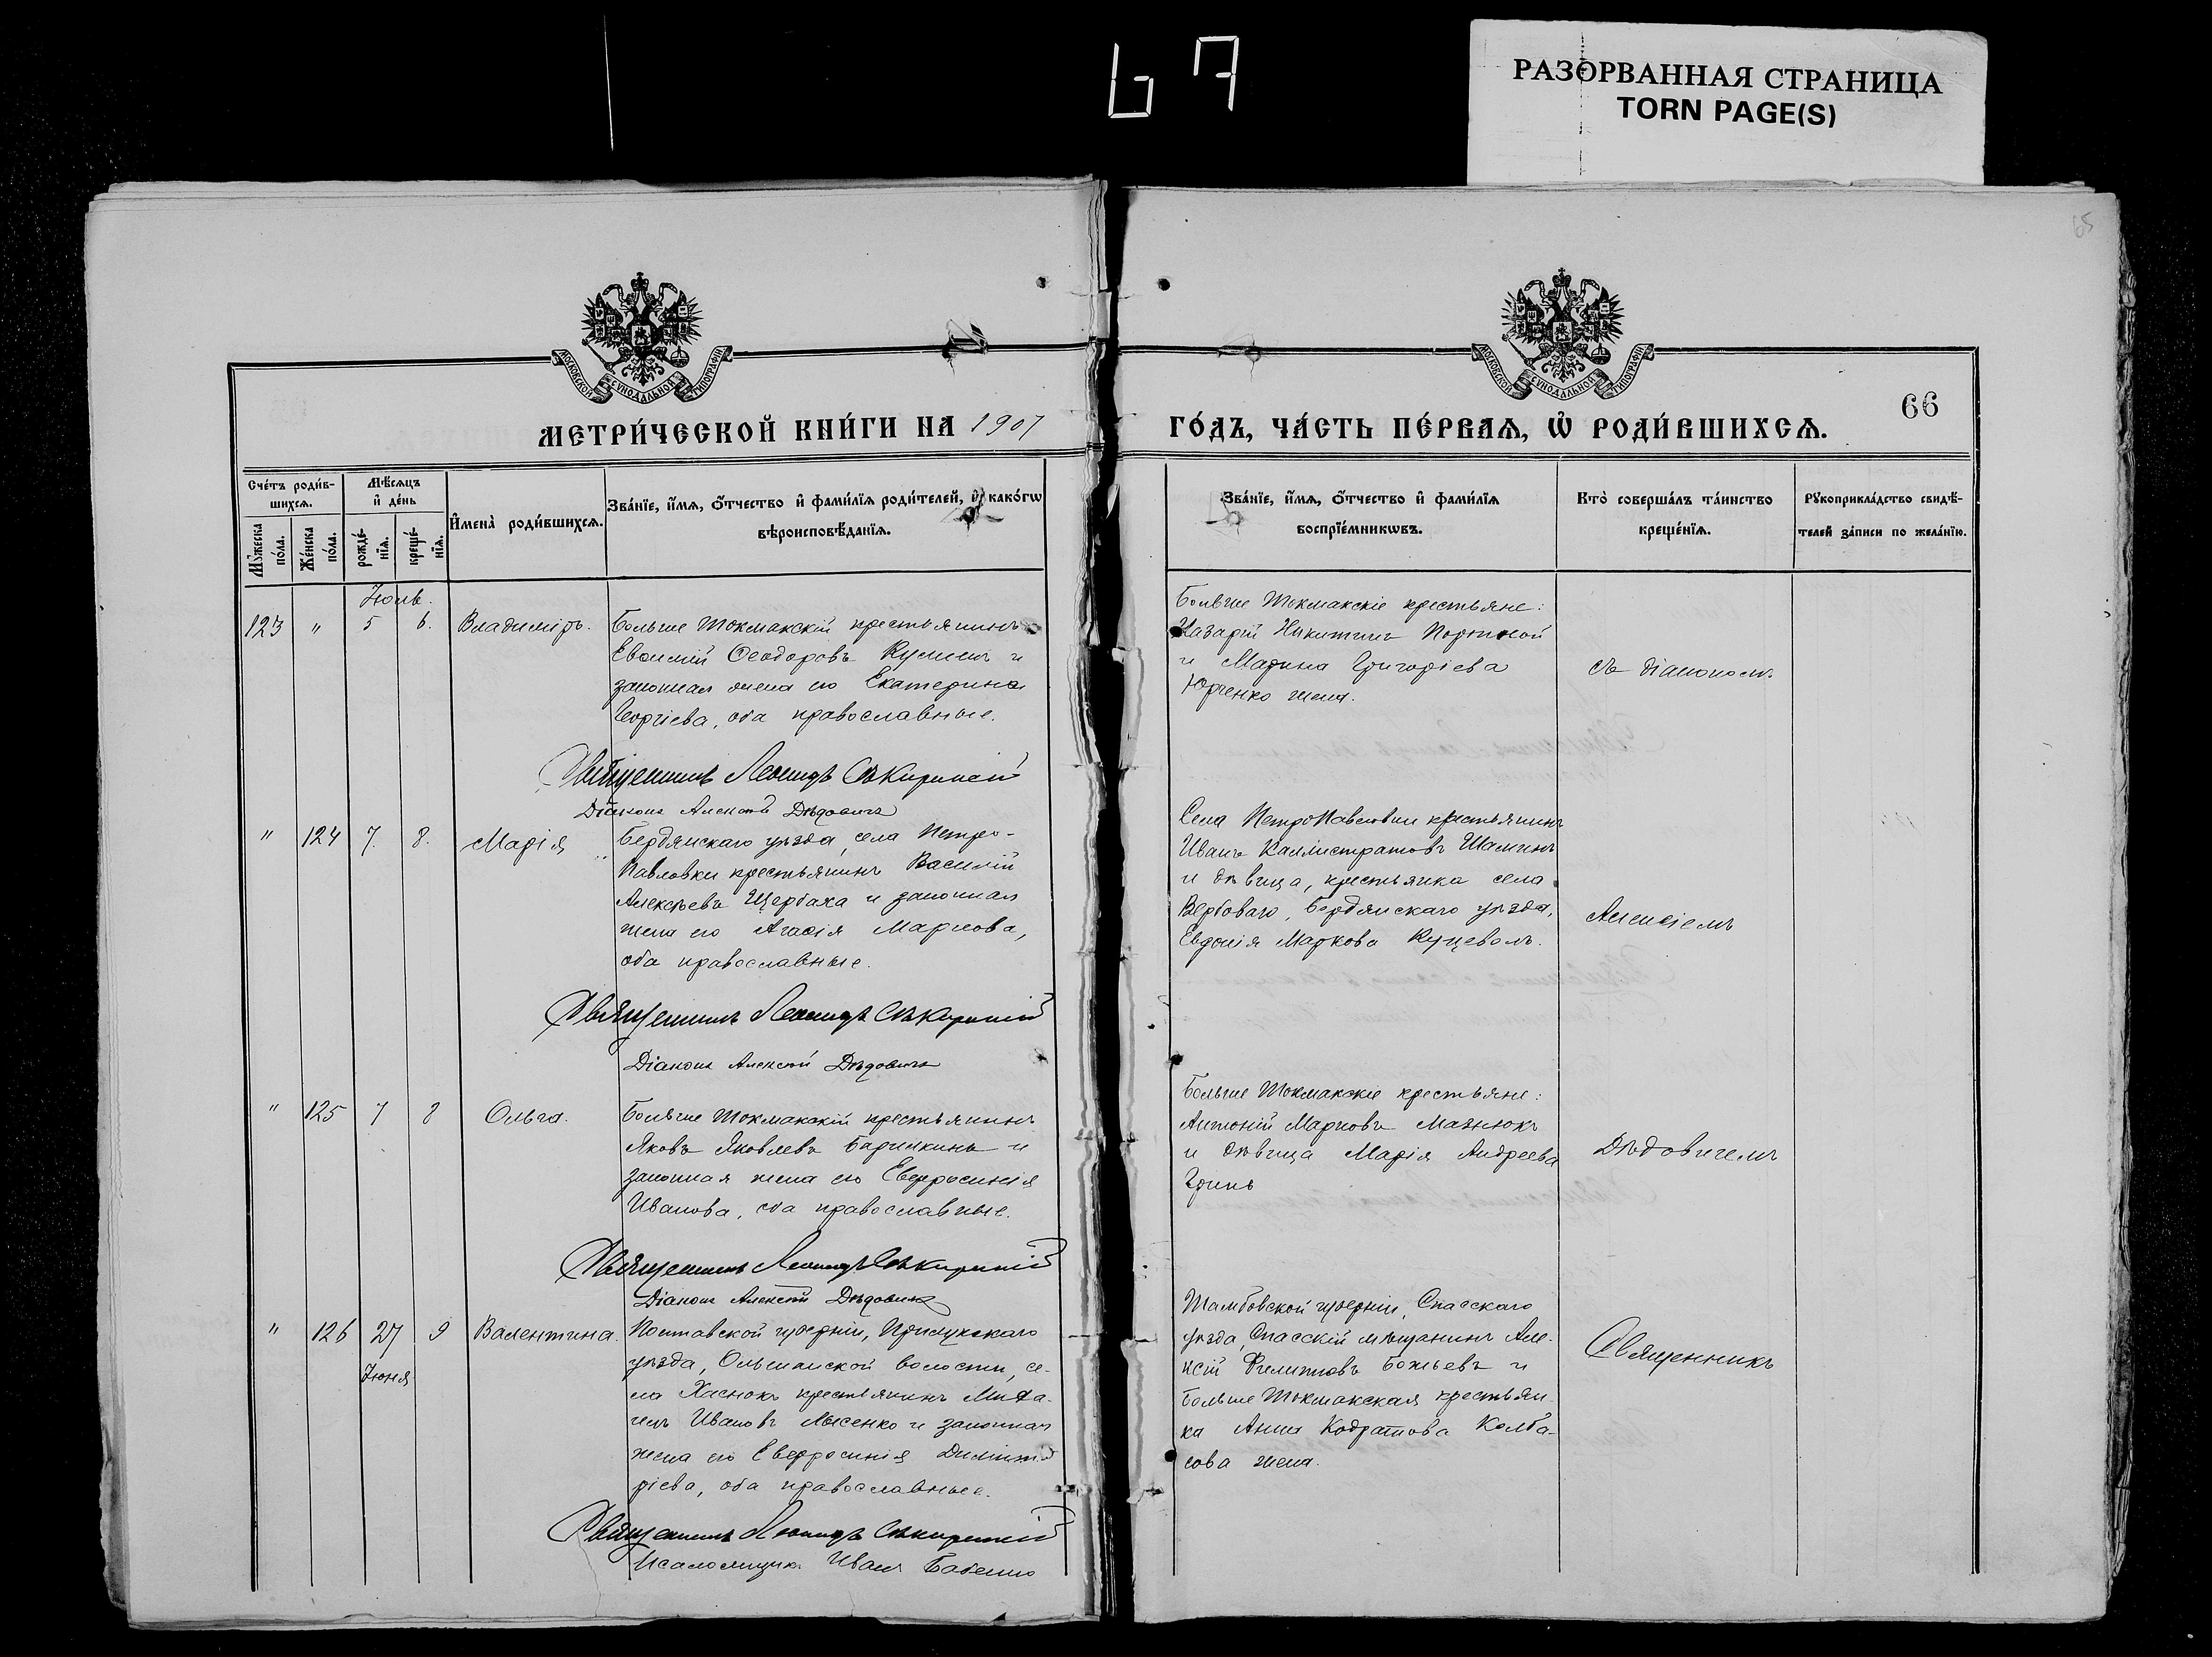 67
РАЗОРВАННАЯ СТРАНИЦА
TORN PAGE(S)
65
МОСКОВСКОЙ СУНОДАЛЬНОЙ ТИПОГРАФІИ
МОСКОВСКОЙ СУНОДАЛЬНОЙ ТИПОГРАФІИ
66
МЕТРИ́ЧЕСКОЙ КНИ́ГИ НА 1907
ГО́ДЪ, ЧА́СТЬ ПЕ́РВАѦ, Ѡ РОДИ́ВШИХСѦ.
Сче́тъ роди́в-
шихсѧ.
Мꙋ́жеска по́ла.
Же́нска по́ла.
Мѣ́сѧцъ
и҆ де́нь
рожде́-
нїѧ.
креще́-
нїѧ.
И҆мена̀ роди́вшихсѧ.
Зва́нїе, и҆́мѧ, ѻ҆́тчество и҆ фами́лїѧ роди́телей, и҆ како́гѡ
вѣроисповѣ́данїѧ.
Зва́нїе, и҆́мѧ, ѻ҆́тчество и҆ фами́лїѧ
воспрїе́мникѡвъ.
Кто̀ соверша́лъ та́инство
креще́нїѧ.
Рꙋкоприкла́дство свидѣ́-
телей за́писи по жела́нїю.
Іюль.
123 " 5 6. Владиміръ.
Больше Токмакскій крестьянинъ
Евѳимій Ѳеодоровъ и
законная жена его Екатерина
Георгіева, оба православные.
Священникъ Леонидъ Сѣкиринскій
Діаконъ Алексій Дѣдовичъ
Больше Токмакскіе крестьяне:
Назарій Никитинъ Портной
и Марина Григоріева
Юрченко жена.
съ діакономъ
" 124 7. 8. Марія
Бердянскаго уѣзда, села Петро-
Павловки крестьянинъ Василій
Алексѣевъ Щербаха и законная
жена его Агаѳія Маркова,
оба православные.
Священникъ Леонидъ Сѣкиринскій
Діаконъ Алексій Дѣдовичъ
Села ПетроПавловки крестьянинъ
Иванъ Каллистратовъ Шаминъ
и дѣвица, крестьянка села
Вербоваго, Бердянскаго уѣзда,
Евдокія Маркова Куцеволъ.
Алексіемъ
" 125 7 8 Ольга.
Больше Токмакскій крестьянинъ
Яковъ Яковлевъ Баринкинъ и
законная жена его Евфросинія
Иванова, оба православные.
Священникъ Леонидъ Сѣкиринскій
Діаконъ Алексій Дѣдовичъ
Больше Токмакскіе крестьяне:
Антоній Марковъ Мазнюкъ
и дѣвица Марія Андреева
Гринь
Дѣдовичемъ
" 126 27 9 Валентина.
Іюня
Полтавской губерніи, Прилукскаго
уѣзда, Ольшанской волости, се-
ла Хаснокъ крестьянинъ Миха-
илъ Ивановъ Лысенко и законная
жена его Евфросинія Дими-
ріева, оба православные.
Священникъ Леонидъ Сѣкиринскій
Псаломщикъ Иванъ Бабенко
Тамбовской губерніи, Спасскаго
уѣзда, Спасскій мѣщанинъ Але-
ксій Филипповъ Божьевъ и
Больше Токмакская крестьян-
ка Анна Кодратова Колба-
сова жена.
Священникъ